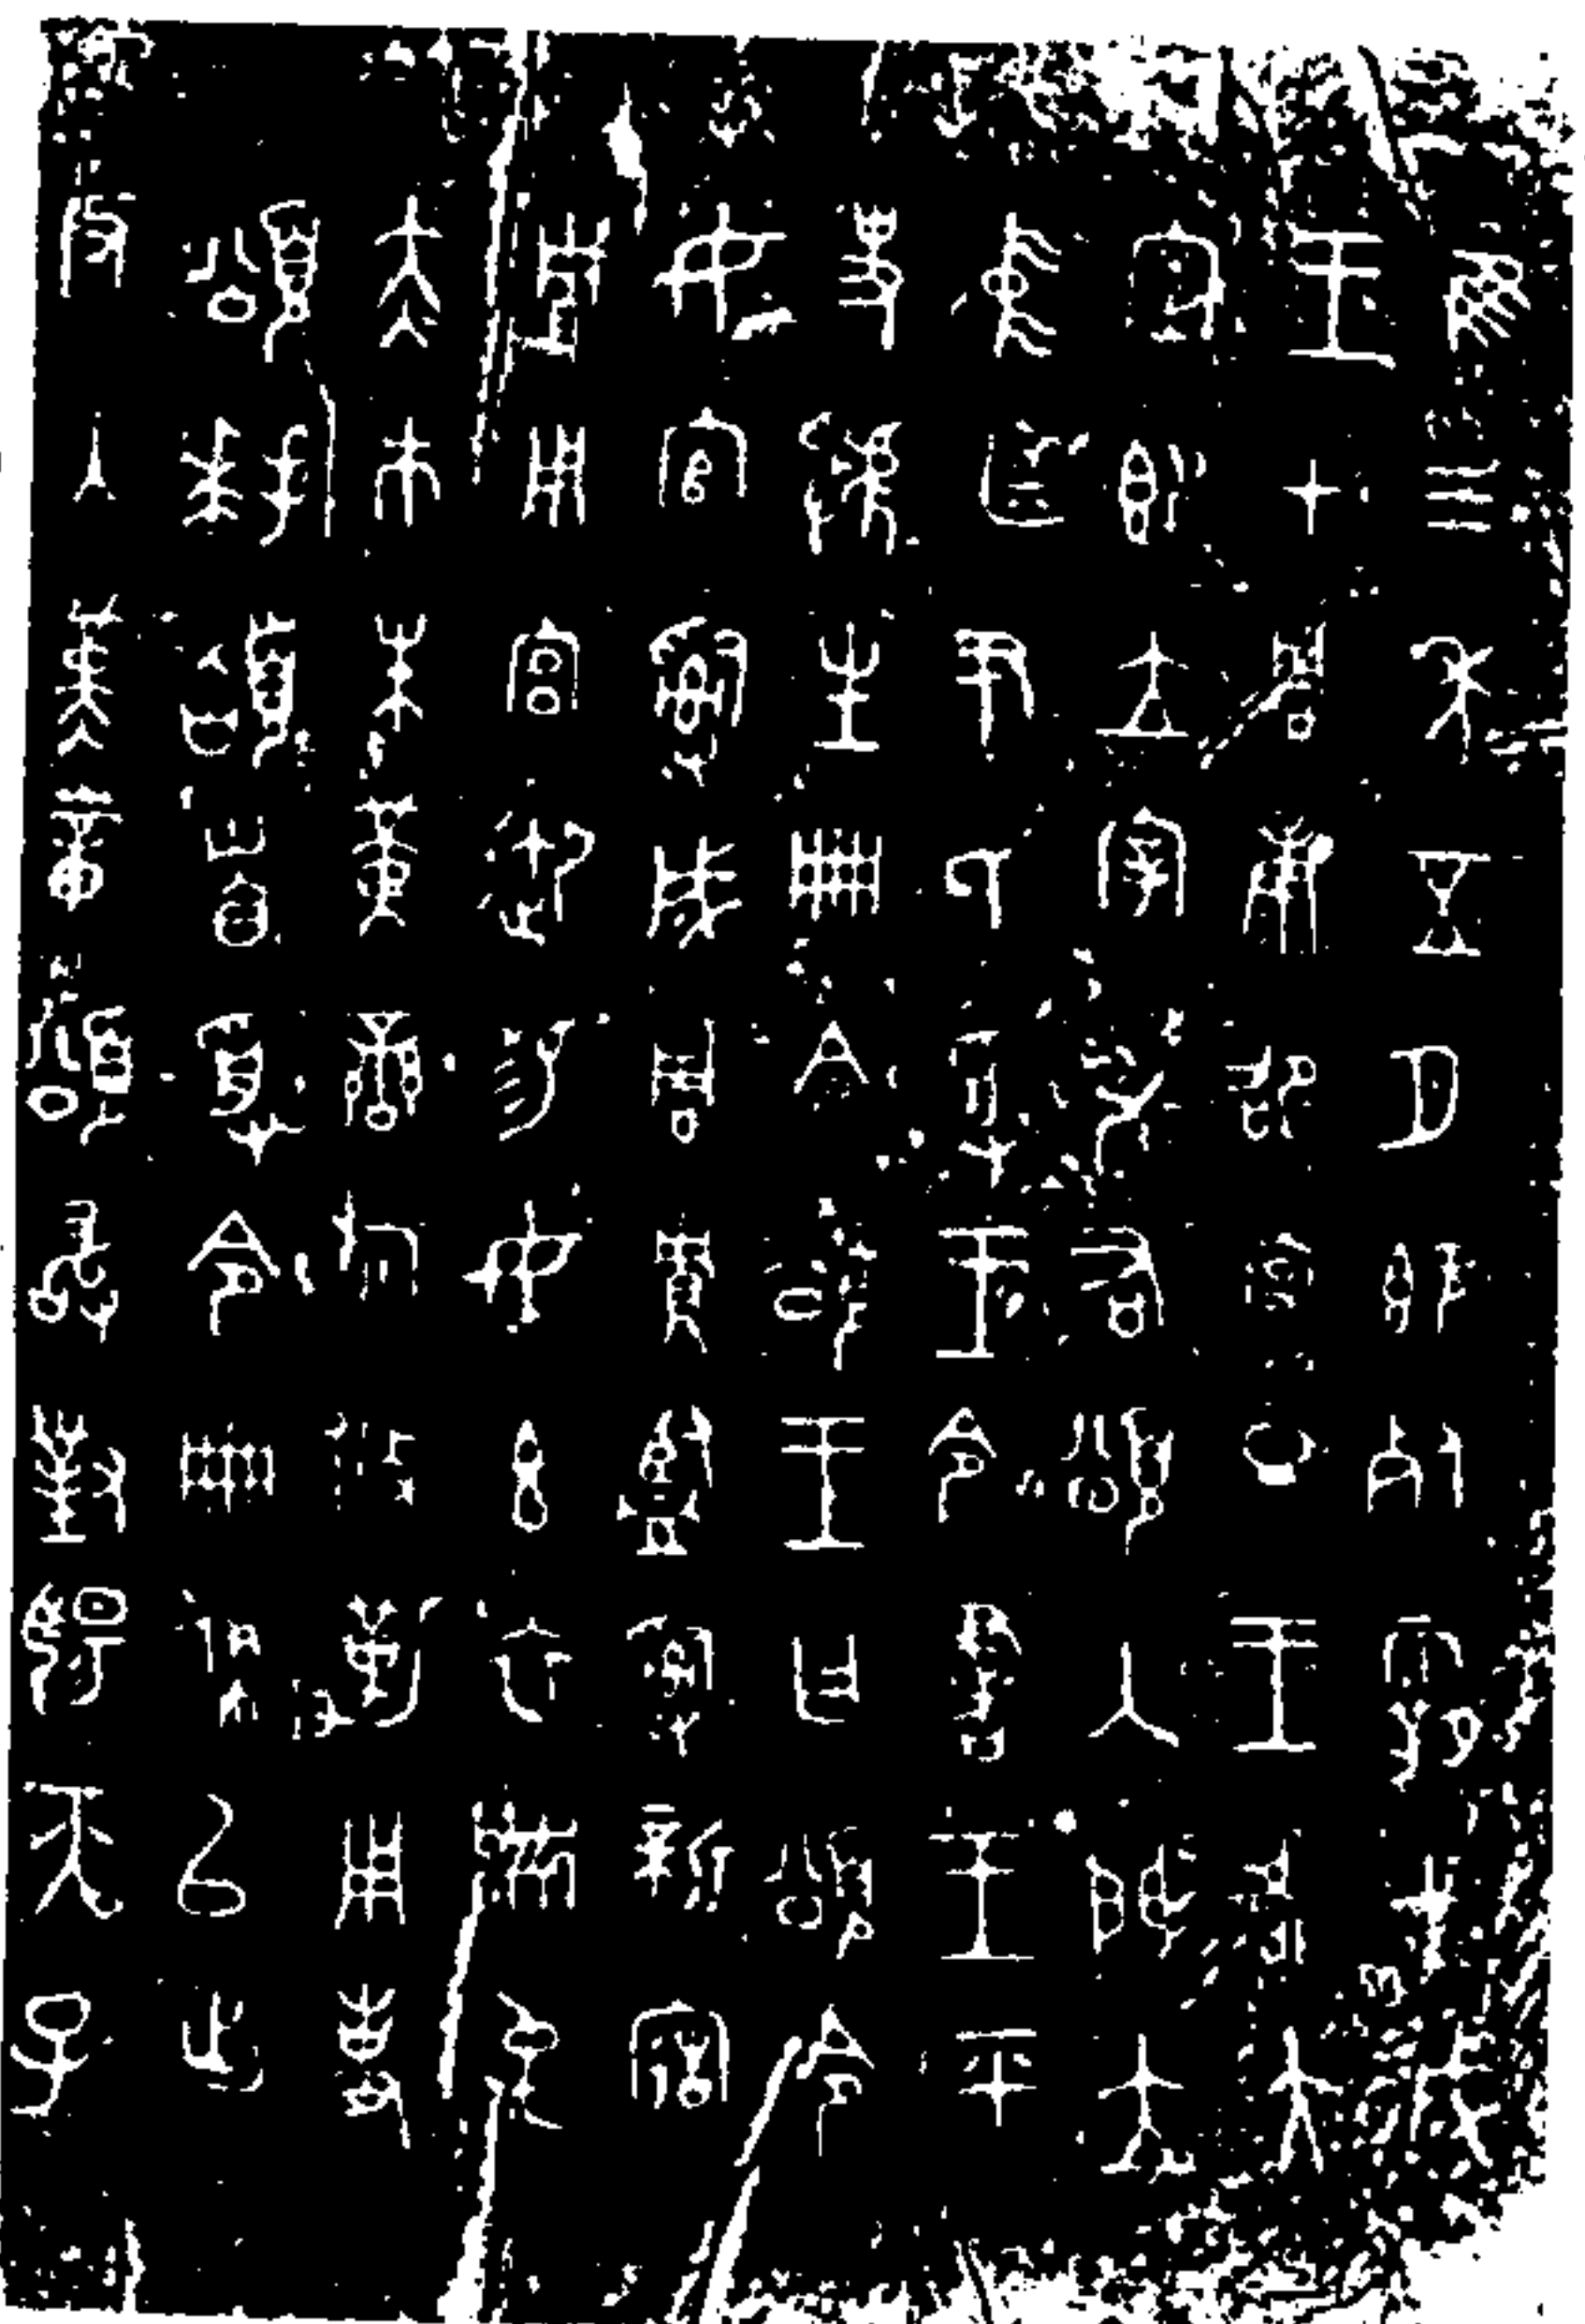 隹三年五月既死霸甲戌
王才周康卲宮旦王各大
室即立宰引右頌入門立
中廷尹氏受王令書王乎
史虢生冊令頌王曰頌令
女官𤔲成周貯監𤔲新造
貯用宮御易女玄衣黹屯
赤巿朱黃䜌旂攸勒用事
頌拜𩒨首受令冊佩以出
反入堇章頌敢對揚天子